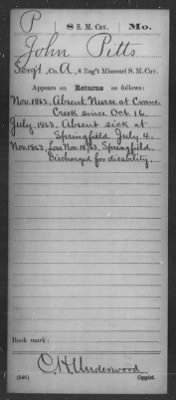 P 8 S. M. Cav. Mo.
John Pitts
Sergt, Co. A, 8 Reg't Missouri S. M. Cav.
Appears on Returns as follows:
Nov. 1862, Absent Nurse at Crane
Creek since Oct 16.
July, 1863, Absent sick at
Springfield July 4.
Nov. 1863, Loss Nov. 18/63, Springfield.
Discharged for disability.
Book mark:
C. H. Underwood
(546) Copyist.